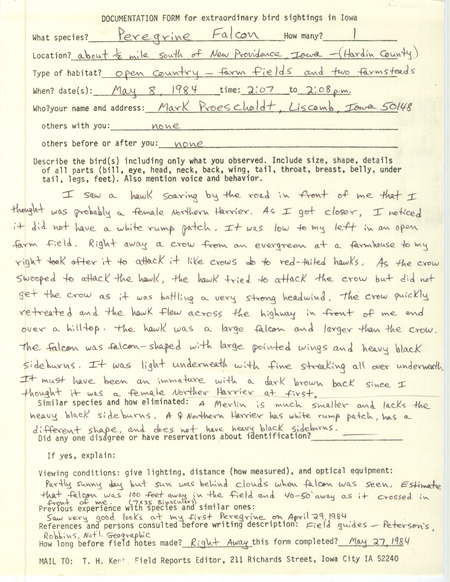 DOCUMENTATION FORM for extraordinary bird sightings in Iowa
What species? Peregrine Falcon How many? 1
Location? about ½ mile south of New Providence, Iowa - (Hardin County)
Type of habitat? open country - farm fields and two farmsteads
When? date(s): May 8, 1984 time: 2:07 to 2:08 p.m.
Who? your name and address: Mark Proescholdt, Liscomb, Iowa 50148
others with you: none
others before or after you: none
Describe the bird(s) including only what you observed. Include size, shape, details
of all parts (bill, eye, head, neck, back, wing, tail, throat, breast, belly, under
tail, legs, feet). Also mention voice and behavior.
I saw a hawk soaring by the road in front of me that I
thought was probably a female Northern Harrier. As I got closer, I noticed
it did not have a white rump patch. It was low to my left in an open
farm field. Right away a crow from an evergreen at a farmhouse to my
right took after it to attack it like crows do to red-tailed hawks. As the crow
swooped to attack the hawk, the hawk tried to attack the crow but did not
get the crow as it was battling a very strong headwind. The crow quickly
retreated and the hawk flew across the highway in front of me and
over a hilltop. The hawk was a large falcon and larger than the crow.
The falcon was falcon-shaped with large pointed wings and heavy black
sideburns. It was light underneath with fine streaking all over underneath.
It must have been an immature with a dark brown back since I
thought it was a female Norther Harrier at first.
Similar species and how eliminated: A Merlin is much smaller and lacks the
heavy black sideburns. A ♀ Northern Harrier has white rump patch, has a
different shape, and does not have heavy black sideburns.
Did any one disagree or have reservations about identification?
If yes, explain:
Viewing conditions: give lighting, distance (how measured), and optical equipment:
Partly sunny day but sun was behind clouds when falcon was seen. Estimate
that falcon was 100 feet away in the field and 40-50' away as it crossed in
front of me. (7x35 binoculars)
Previous experience with species and similar ones:
Saw very good looks at my first Peregrine on April 29, 1984
References and persons consulted before writing description: Field guides - Peterson's,
Robbins, Nat'l Geographic
How long before field notes made? Right Away this form completed? May 27, 1984
MAIL TO: T. H. Kent, Field Reports Editor, 211 Richards Street, Iowa City IA 52240